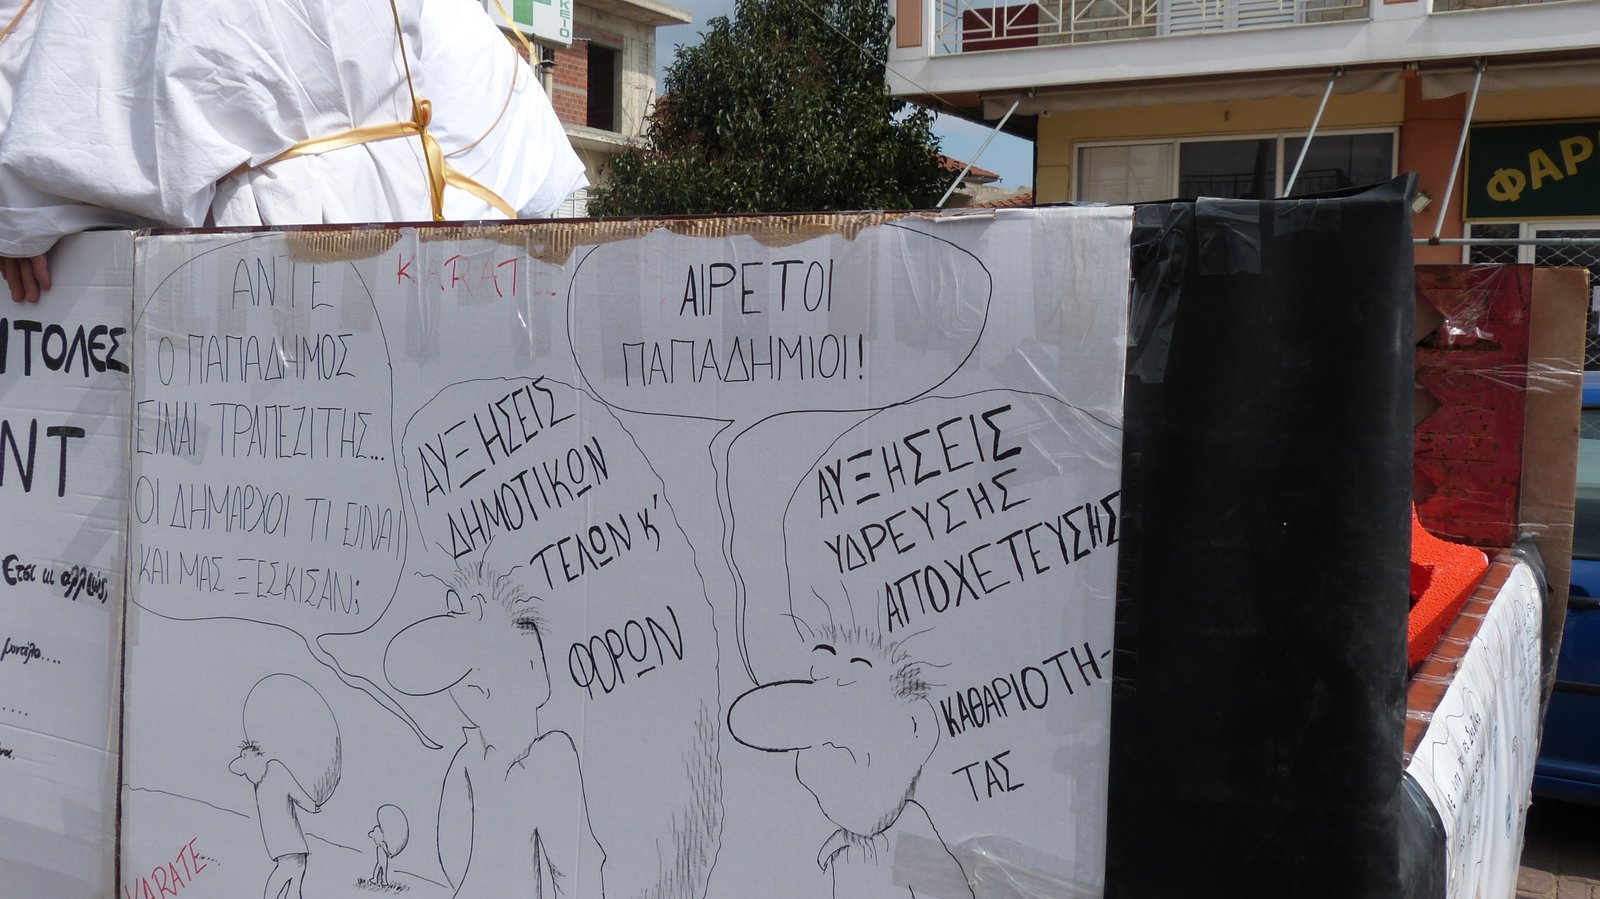 ΚΕΙΟ
ΦΑΡ
ΙΤΟΛΕΣ
ΝΤ
Ετσι κι αλλιώς,
μοντέλο....
....
ΑΝΤΕ
Ο ΠΑΠΑΔΗΜΟΣ
ΕΙΝΑΙ ΤΡΑΠΕΖΙΤΗΣ...
ΟΙ ΔΗΜΑΡΧΟΙ ΤΙ ΕΙΝΑΙ
ΚΑΙ ΜΑΣ ΞΕΣΚΙΣΑΝ;
KARATE.
ΑΙΡΕΤΟΙ
ΠΑΠΑΔΗΜΙΟΙ!
ΑΥΞΗΣΕΙΣ
ΔΗΜΟΤΙΚΩΝ
ΤΕΛΩΝ Κ'
ΦΟΡΩΝ
ΑΥΞΗΣΕΙΣ
ΥΔΡΕΥΣΗΣ
ΑΠΟΧΕΤΕΥΣΗΣ
ΚΑΘΑΡΙΟΤΗ-
ΤΑΣ
KARATE....